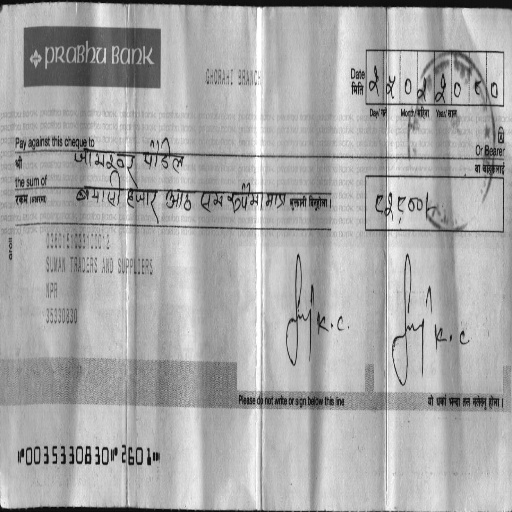 PRABHU BANK
GHORAHI BRANCH
Date
मिति
Day/गते Month/महिना Year/साल
Pay against this cheque to
श्री
पौडेल
Or Bearer
वा वाहकलाई
the sum of
रकम (अक्षरेपी)
बयासी हजार आठ सय रुपैया मात्र
८२८००/-
SUMAN TRADERS AND SUPPLIERS
NPR
35330830
K.C. K.C.
Please do not write or sign below this line
⑈0035330830⑈2601⑈